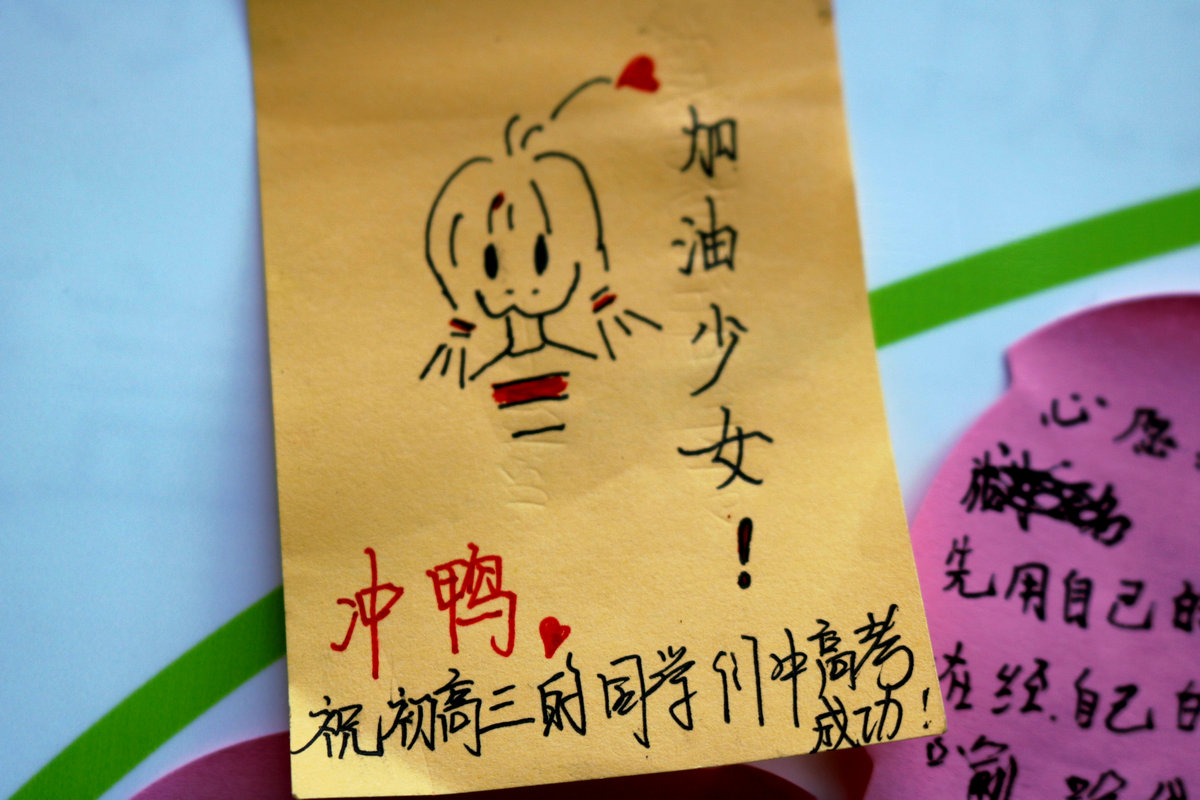 加油少女!
冲鸭
祝初高三的同学们冲高考
成功!
心愿
先用自己的
在经自己的